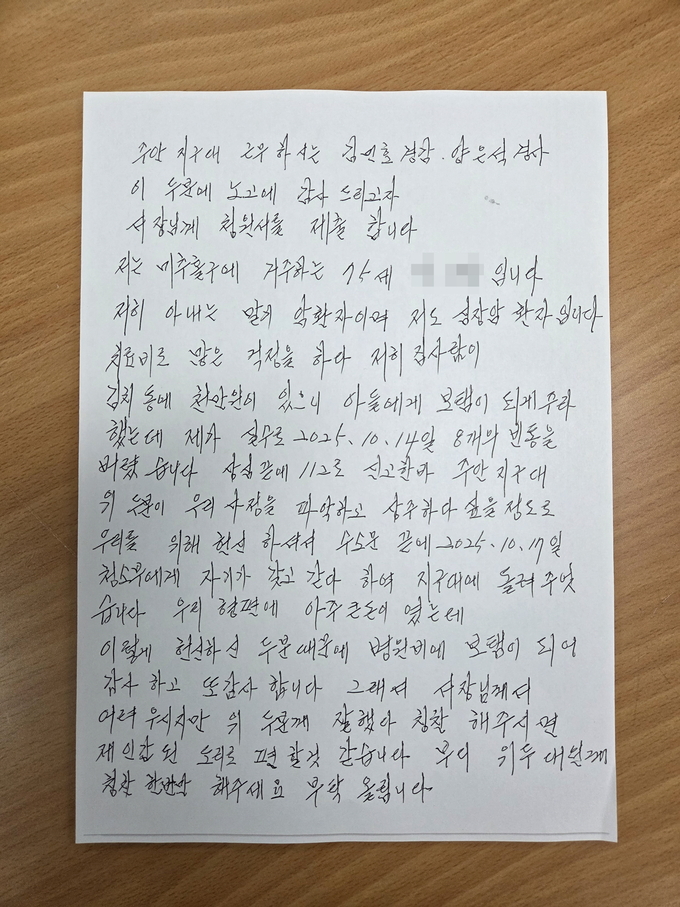 주안 지구대 근무 하시는 김민호 경감. 양은석 경사
이 두분에 노고에 감사 드리고자
서장님께 청원서를 제출 합니다
저는 미추홀구에 거주하는 75세 입니다
저희 아내는 말기 암환자이며 저도 심장암 환자입니다
치료비로 많은 걱정을 하다 저희 집사람이
김치통에 천만원이 있으니 아들에게 보탬이 되게 주라
했는데 제가 실수로 2025.10.14일 8개의 빈통을
버렸습니다 상심 끝에 112로 신고한바 주안 지구대
위 두분이 우리 사정을 파악하고 상주하다 싶을 정도로
우리를 위해 헌신 하셔서 수소문 끝에 2025.10.17일
청소부에게 자기가 갖고 간다 하여 지구대에 돌려 주엇
습니다 우리 형편에 아주 큰돈이 였는데
이렇게 헌신하신 두분 때문에 병원비에 보탬이 되어
감사 하고 또 감사 합니다 그래서 서장님께서
어려우시지만 위 두분께 잘했다 칭찬 해주시면
제 인간 된 도리로 편 할것 같습니다 부디 위 두
칭찬 한번만 해주세요 부탁 올립니다.